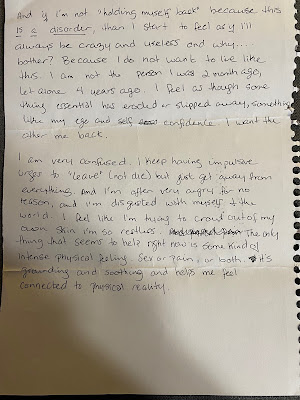 And if I'm not "holding myself back" because this
is a disorder, than I start to feel as if I'll
always be crazy and useless and why...
bother? Because I do not want to live like
this. I am not the person I was 2 month ago,
let alone 4 years ago. I feel as though some
thing essential has eroded or slipped away, something
like my ego and self confidence I want the
other me back.
I am very confused. I keep having impulsive
urges to "leave" (not die) but just get away from
everything. And I'm often very angry for no
reason, and I'm disgusted with myself & the
world. I feel like I'm trying to crawl out of my
own skin I'm so restless. The only
thing that seems to help right now is some kind of
intense physical feeling. Sex or pain, or both. It's
grounding and soothing and helps me feel
connected to physical reality.